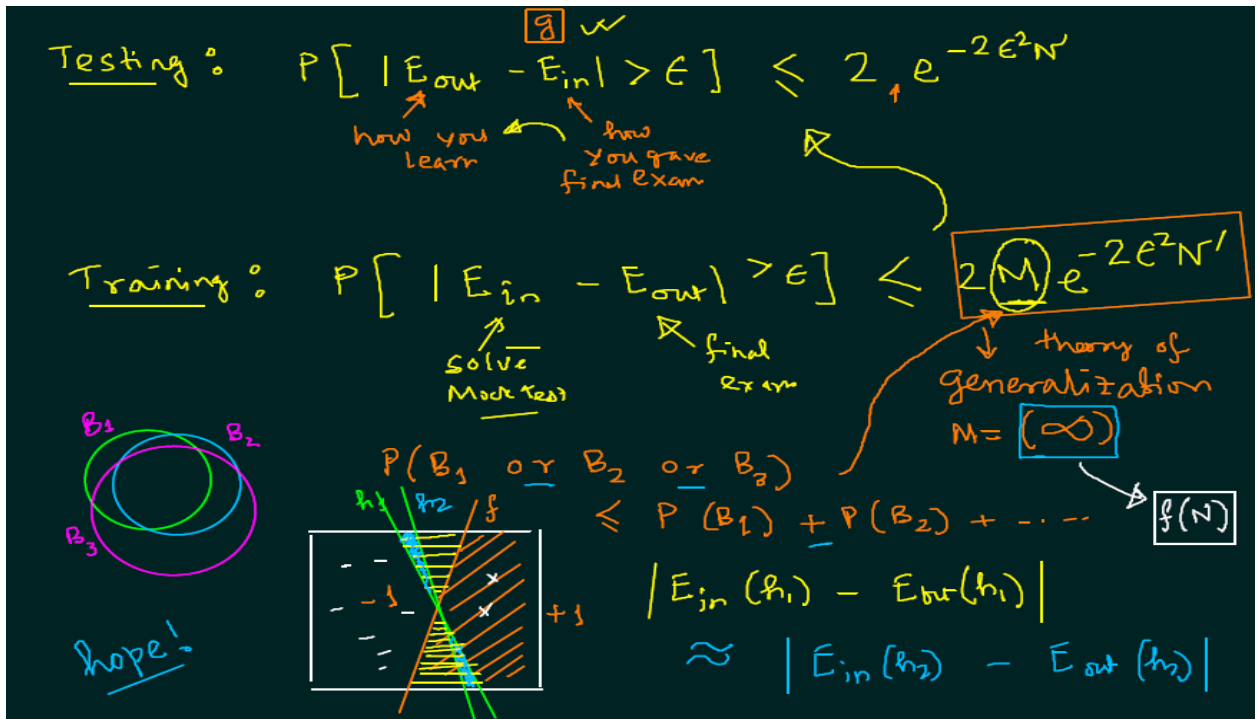 g
Testing : P[ |E_out - E_in| > ϵ ] ≤ 2 e^{-2ϵ²N}
how you learn
how you gave final exam
Training : P[ |E_in - E_out| > ϵ ] ≤ 2 M e^{-2ϵ²N}
solve
Mock test
final
exam
theory of
generalization
M = (∞)
f(N)
B1
B2
B3
P(B1 or B2 or B3)
≤ P(B1) + P(B2) + ....
h1 h2 f
- 1
+1
|E_in(h1) - E_out(h1)|
≈ |E_in(h2) - E_out(h2)|
hope!